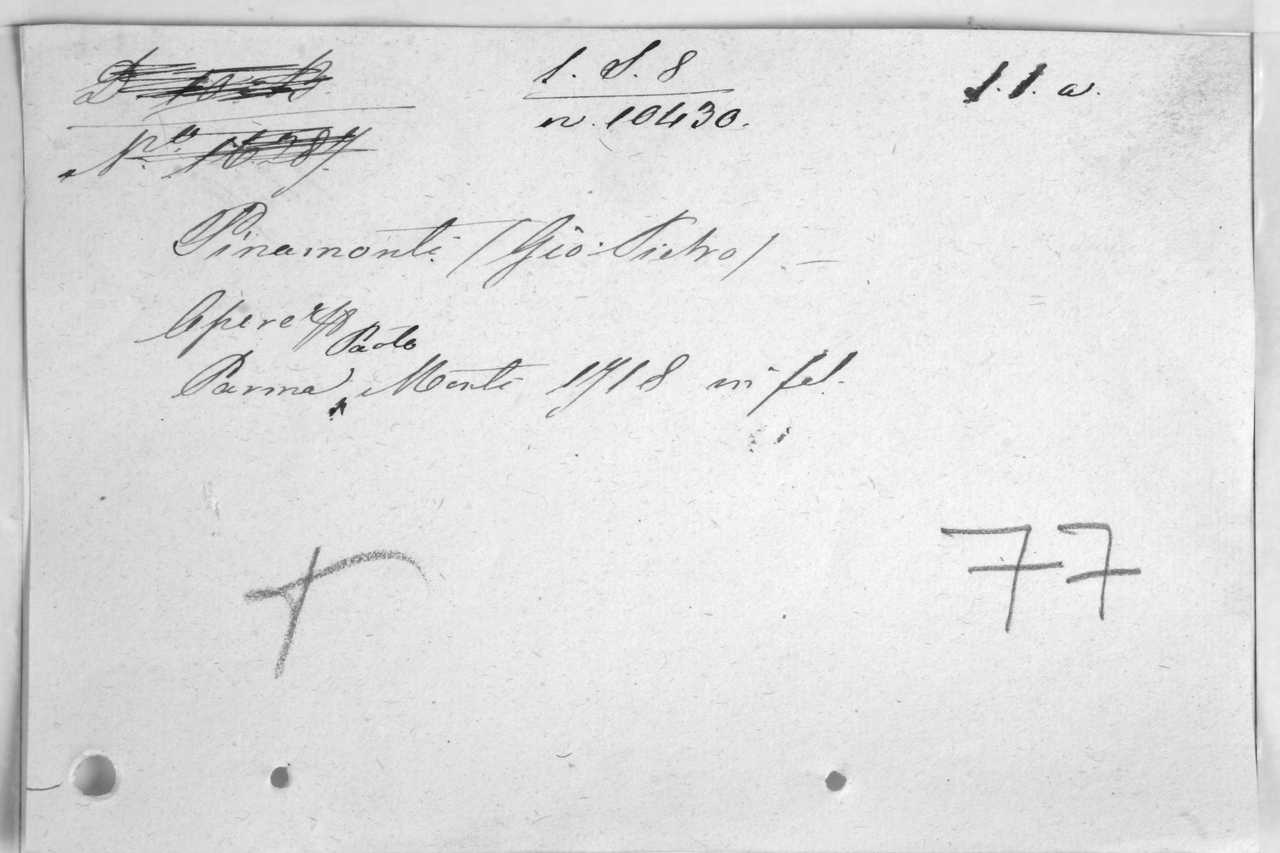 1. S. 8
n. 10430.
1.1. a.
Pinamonti (Gio: Pietro) —
Opere
Paolo
Parma, Monti 1718 in fol.
77